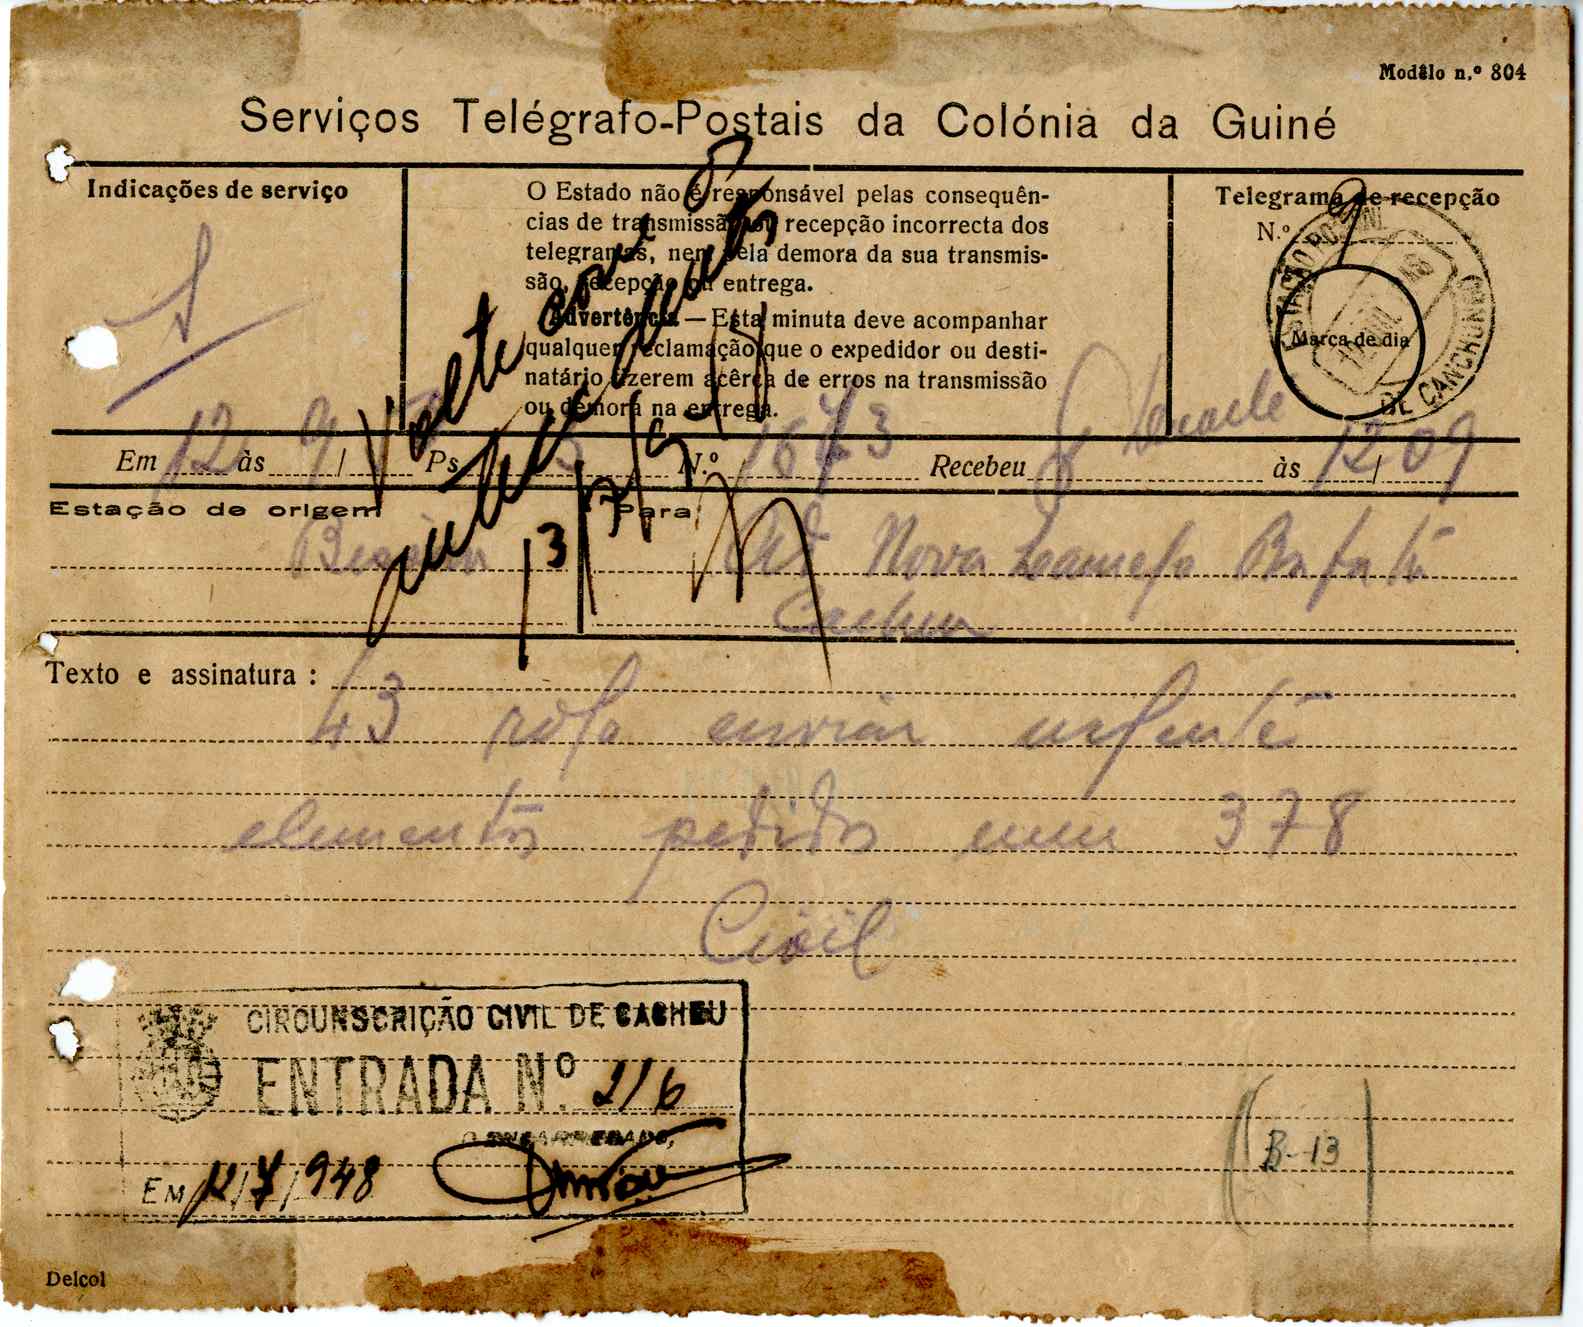 Modêlo n.º 804
Serviços Telégrafo-Postais da Colónia da Guiné
Indicações de serviço
S
O Estado não é responsável pelas consequên-
cias de transmissão ou recepção incorrecta dos
telegramas, nem pela demora da sua transmis-
são, recepção ou entrega.
Advertência — Esta minuta deve acompanhar
qualquer reclamação que o expedidor ou desti-
natário fizerem acêrca de erros na transmissão
ou demora na entrega.
Telegrama de recepção
N.º 9
Marca de dia
ESTAÇÃO POSTAL
DE CANCHUNGO
Em 12 às 9 / Ps N.º 1673 Recebeu às 12 / 09
Estação de origem
Bissau
Para
Ad Nova Lamego Bafatá
Cacheu
Texto e assinatura :
43 rogo enviar urgente
elementos pedidos num 378
Civil
CIRCUNSCRIÇÃO CIVIL DE CACHEU
ENTRADA N.º 216
O ENCARREGADO,
EM 12/7/948
(B-13)
Delcol